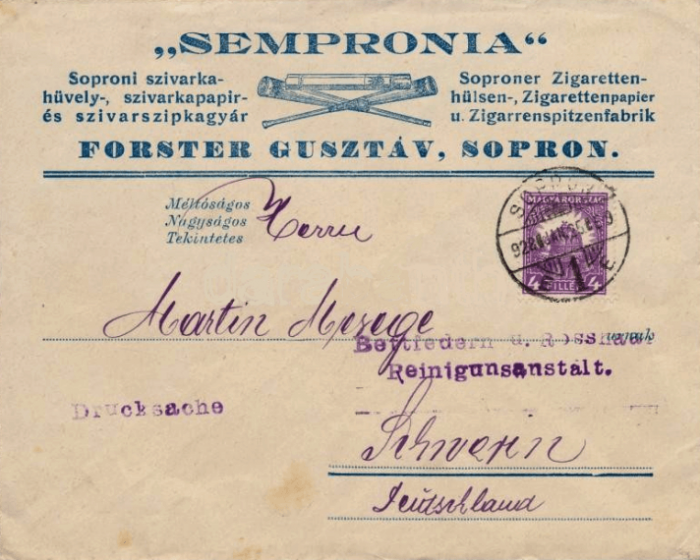 „SEMPRONIA“
Soproni szivarka-
hüvely-, szivarkapapir-
és szivarszipkagyár
Soproner Zigaretten-
hülsen-, Zigarettenpapier
u. Zigarrenspitzenfabrik
FORSTER GUSZTÁV, SOPRON.
Méltóságos
Nagyságos
Tekintetes
Herrn
MAGYARORSZÁG
4 FILLÉR 4
SOPRON 1
Martin Mezege
urnak
Bettfedern u. Rosshaar
Reinigunsanstalt.
Drucksache
Schwerin
Deutschland